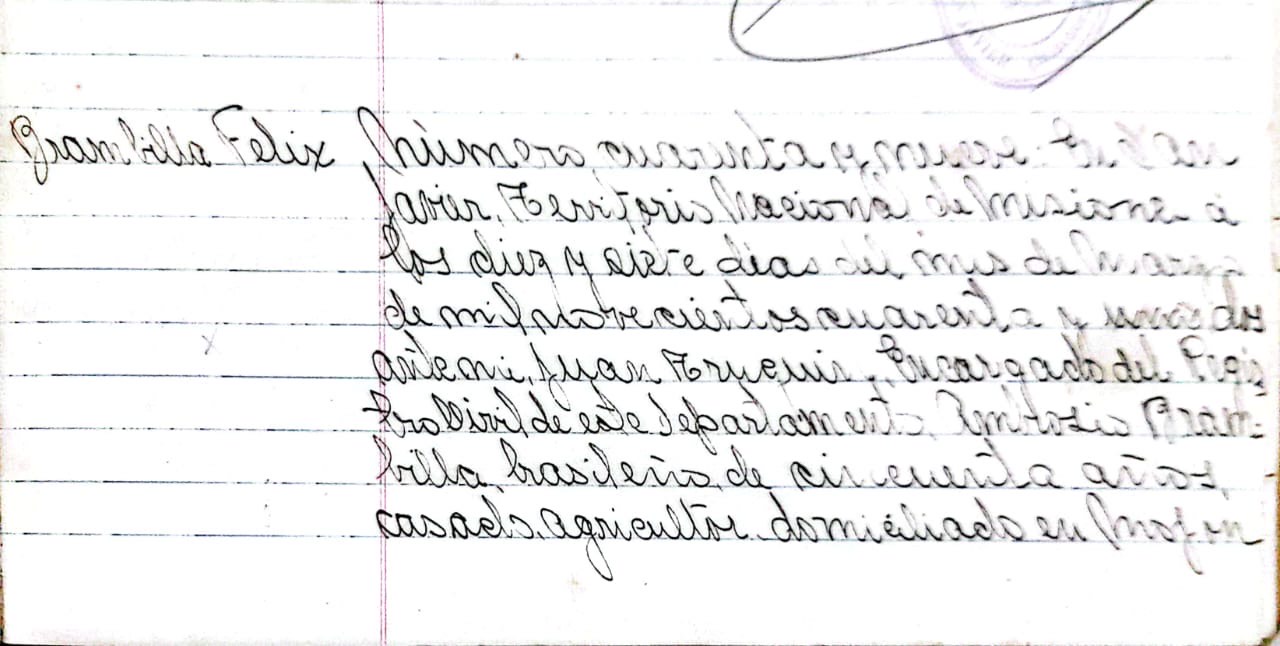 Brambilla Felix
Número cuarenta y nueve. En San
Javier, Territorio Nacional de Misiones a
los diez y siete dias del mes de Marzo
de mil novecientos cuarenta y dos
ante mi, Juan Encargado del Regis
tro Civil de este departamento, Ambrosio Bram-
billa, brasileño, de cincuenta años,
casado, agricultor domiciliado en Mojon